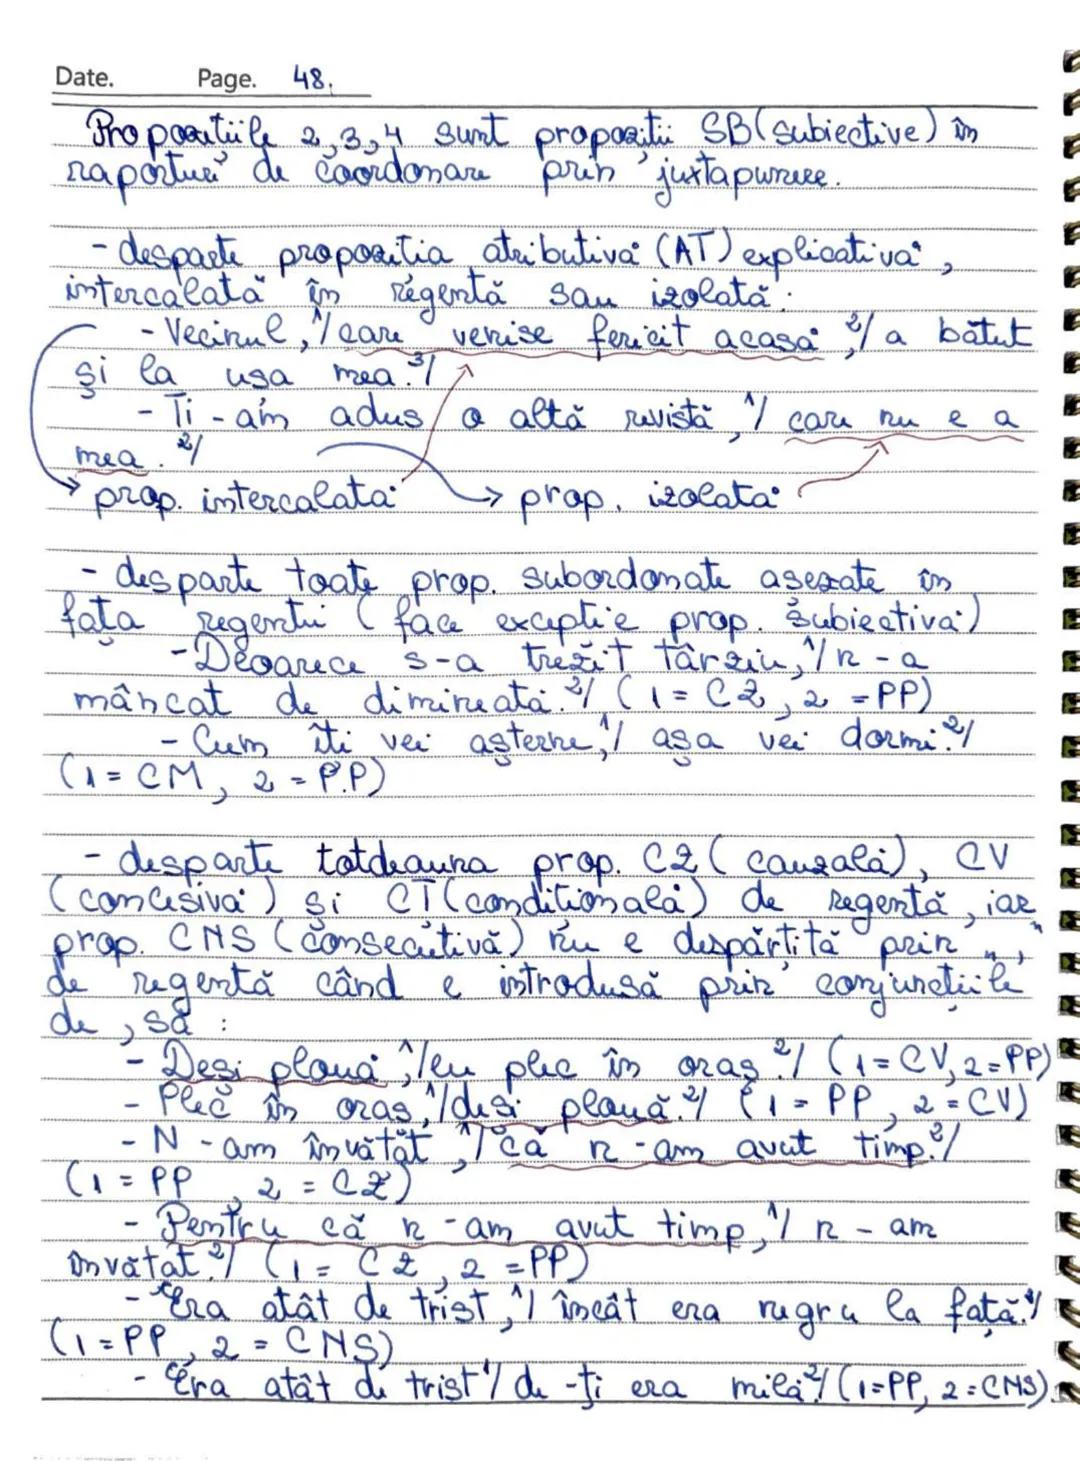 Date. Page. 48.
Propozițiile 2, 3, 4 sunt propoziții SB (subiective) în
raporturi de coordonare prin juxtapunere.
- desparte propoziția atributivă (AT) explicativă,
intercalată în regentă sau izolată.
- Vecinul, ¹/ care venise fericit acasă ²/, a bătut
și la ușa mea. ³/
- Ți-am adus o altă revistă, ¹/ care nu e a
mea. ²/
prop. intercalată → prop. izolată
- desparte toate prop. subordonate așezate în
fața regentei (face excepție prop. subiectivă)
- Deoarece s-a trezit târziu, ¹/ n-a
mâncat de dimineață. ²/ (1 = CZ, 2 = PP)
- Cum îți vei așterne, ¹/ așa vei dormi. ²/
(1 = CM, 2 = P.P)
- desparte totdeauna prop. CZ (cauzală), CV
(concesivă) și CT (condițională) de regentă, iar
prop. CNS (consecutivă) nu e despărțită prin " , "
de regentă când e introdusă prin conjuncțiile
de, să :
- Deși plouă, ¹/ eu plec în oraș. ²/ (1 = CV, 2 = PP)
- Plec în oraș, ¹/ deși plouă. ²/ (1 = PP, 2 = CV)
- N-am învățat, ¹/ că n-am avut timp. ²/
(1 = PP, 2 = CZ)
- Pentru că n-am avut timp, ¹/ n-am
învățat. ²/ (1 = CZ, 2 = PP)
- Era atât de trist, ¹/ încât era negru la față. ²/
(1 = PP, 2 = CNS)
- Era atât de trist ¹/ de-ți era milă. ²/ (1 = PP, 2 = CNS).